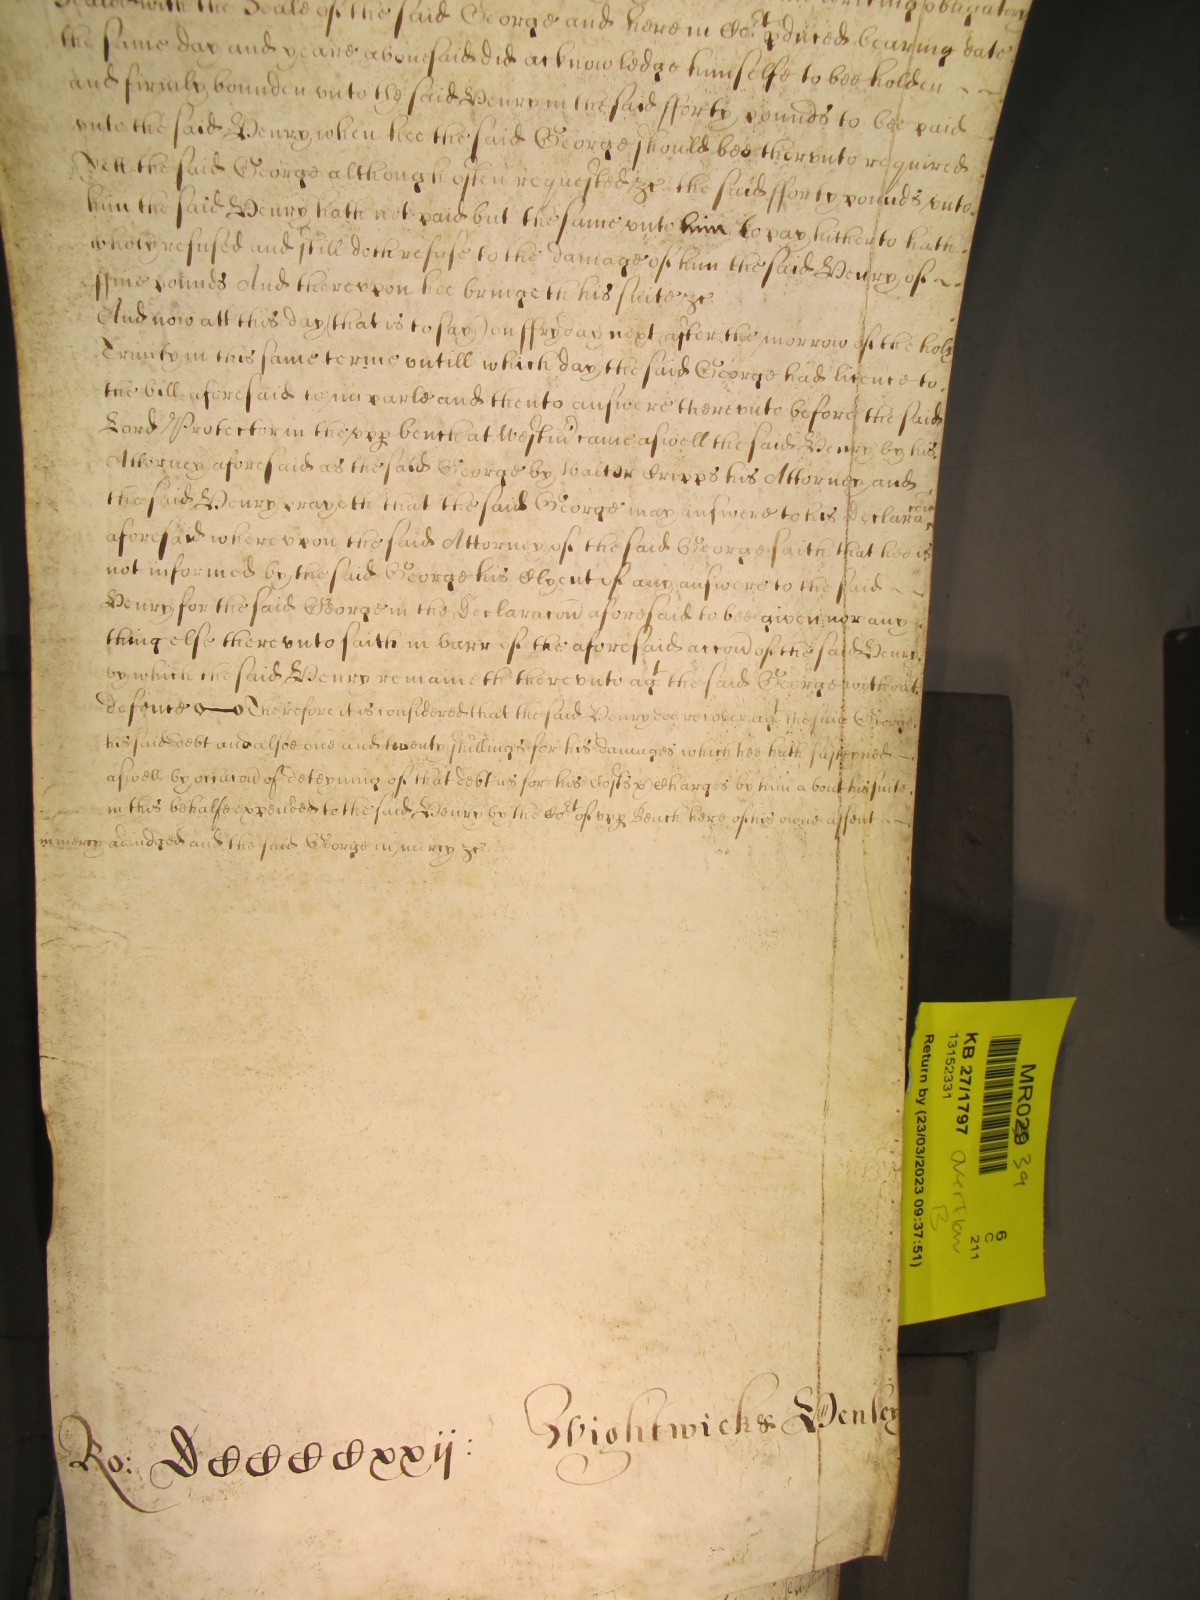 Sealed with the Seale of the said George and here in Cort pduced bearing date
the same day and yeare abovesaid did acknowledge himselfe to bee holden
and firmly bounden vnto the said Henry in the said fforty pounds to bee paid
vnto the said Henry when hee the said George should bee therevnto required
Yett the said George although often requested &c the said fforty pounds vnto
him the said Henry hath not paid but the same vnto him to pay hitherto hath
wholy refused and still doth refuse to the damage of him the said Henry of
ffive pounds And therevpon hee bringeth his suite &c
And now att this day (that is to say) on ffryday next after the morrow of the holy
Trinity in this same terme vntill which day the said George had licence to
the bill aforesaid to imparle and then to answere therevnto before the said
Lord Protector in the vpp bench at Westm came aswell the said Henry by his
Attorney aforesaid as the said George by Walter Cripps his Attorney and
the said Henry prayeth that the said George may answere to his Declaracon
aforesaid wherevpon the said Attorney of the said George saith that hee is
not informed by the said George his Clyent of any answere to the said
Henry for the said George in the Declaracon aforesaid to bee given nor any
thing else therevnto saith in barr of the aforesaid accon of the said Henry
by which the said Henry remaineth therevnto agt the said George without
defence Therefore it is considered that the said Henry doe recover agt the said George
his said debt and alsoe one and twenty shillings for his damages which hee hath susteyned
aswell by occacon of deteyning of that debt as for his Costs & Charges by him about his suite
in this behalfe expended to the said Henry by the Cort of vpp Bench here of his owne assent
in mercy adiudged and the said George in mercy &c
Ro: DCCCCCxxij:
Wightwick & Henley
MR029 39
KB 27/1797 overflow
13152331 B
Return by (23/03/2023 09:37:51)
6
C
211